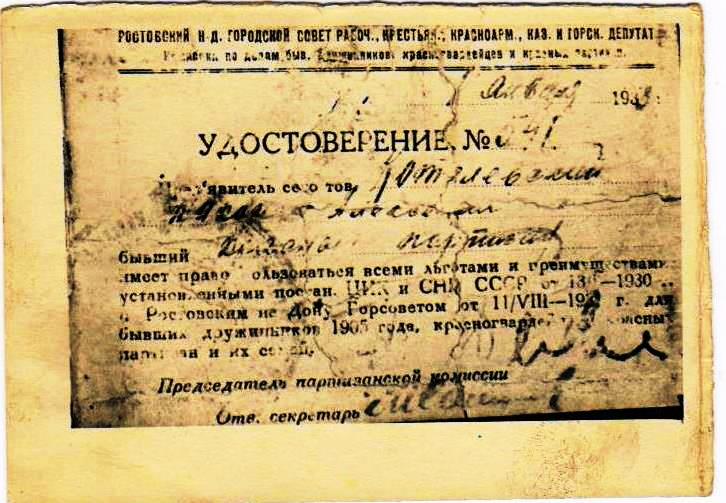 РОСТОВСКИЙ Н-Д. ГОРОДСКОЙ СОВЕТ РАБОЧ., КРЕСТЬЯН., КРАСНОАРМ., КАЗ. И ГОРСК. ДЕПУТАТ.
по делам быв. дружинников красногвардейцев и красных партизан.
Января 193
УДОСТОВЕРЕНИЕ. № 541
Пред'явитель сего тов.
бывший красный партизан
имеет право пользоваться всеми льготами и преимуществами
установленными постан. ЦИК и СНК СССР от 1930 г.
и Ростовским на Дону Горсоветом от 11/VIII—19 г. для
бывших дружинников 1905 года, красногвардейцев, красных
партизан и их семей.
Председатель партизанской комиссии
Отв. секретарь